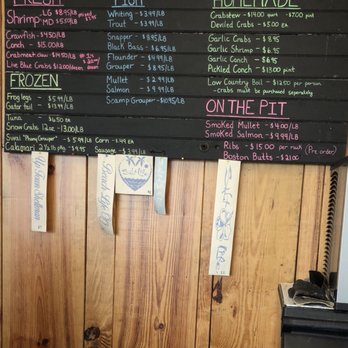 FRESH
Shrimp LG $8.95/LB
MD $5.50/LB
Crawfish - $4.50/LB
Conch - $15.00/LB
Crabmeat claw $14.50/LB
Live Blue Crabs $12.00/dozen
FROZEN
Frog legs - $5.99/LB
Gator tail - $13.99/LB
Tuna $6.50/EA
Snow Crabs 12oz - 13.00/LB
Swai "Phony Grouper" - $5.99/LB
Calamari 2½lb pkg. $9.95
Corn - 49¢ EA
Sausage - $3.99/LB
FISH
Whiting - $3.99/LB
Trout - $3.99/LB
Snapper - $8.95/LB
Black Bass - $6.95/LB
Flounder - $4.99/LB
Grouper - $8.95/LB
Mullet - $2.99/LB
Salmon - $8.99/LB
Scamp Grouper - $10.95/LB
HOMEMADE
Crabstew - $14.00 quart - $7.00 pint
Deviled Crabs - $5.00 EA
Garlic Crabs - $8.95
Garlic Shrimp - $6.95
Garlic Conch - $6.95
Pickled Conch - $13.00 pint
Low Country Boil - $12.50 per person
- crabs must be purchased separately
ON THE PIT
Smoked Mullet - $4.00/LB
Smoked Salmon - $9.99/LB
Ribs - $15.00 per rack
Boston Butts - $21.00
(Pre order)